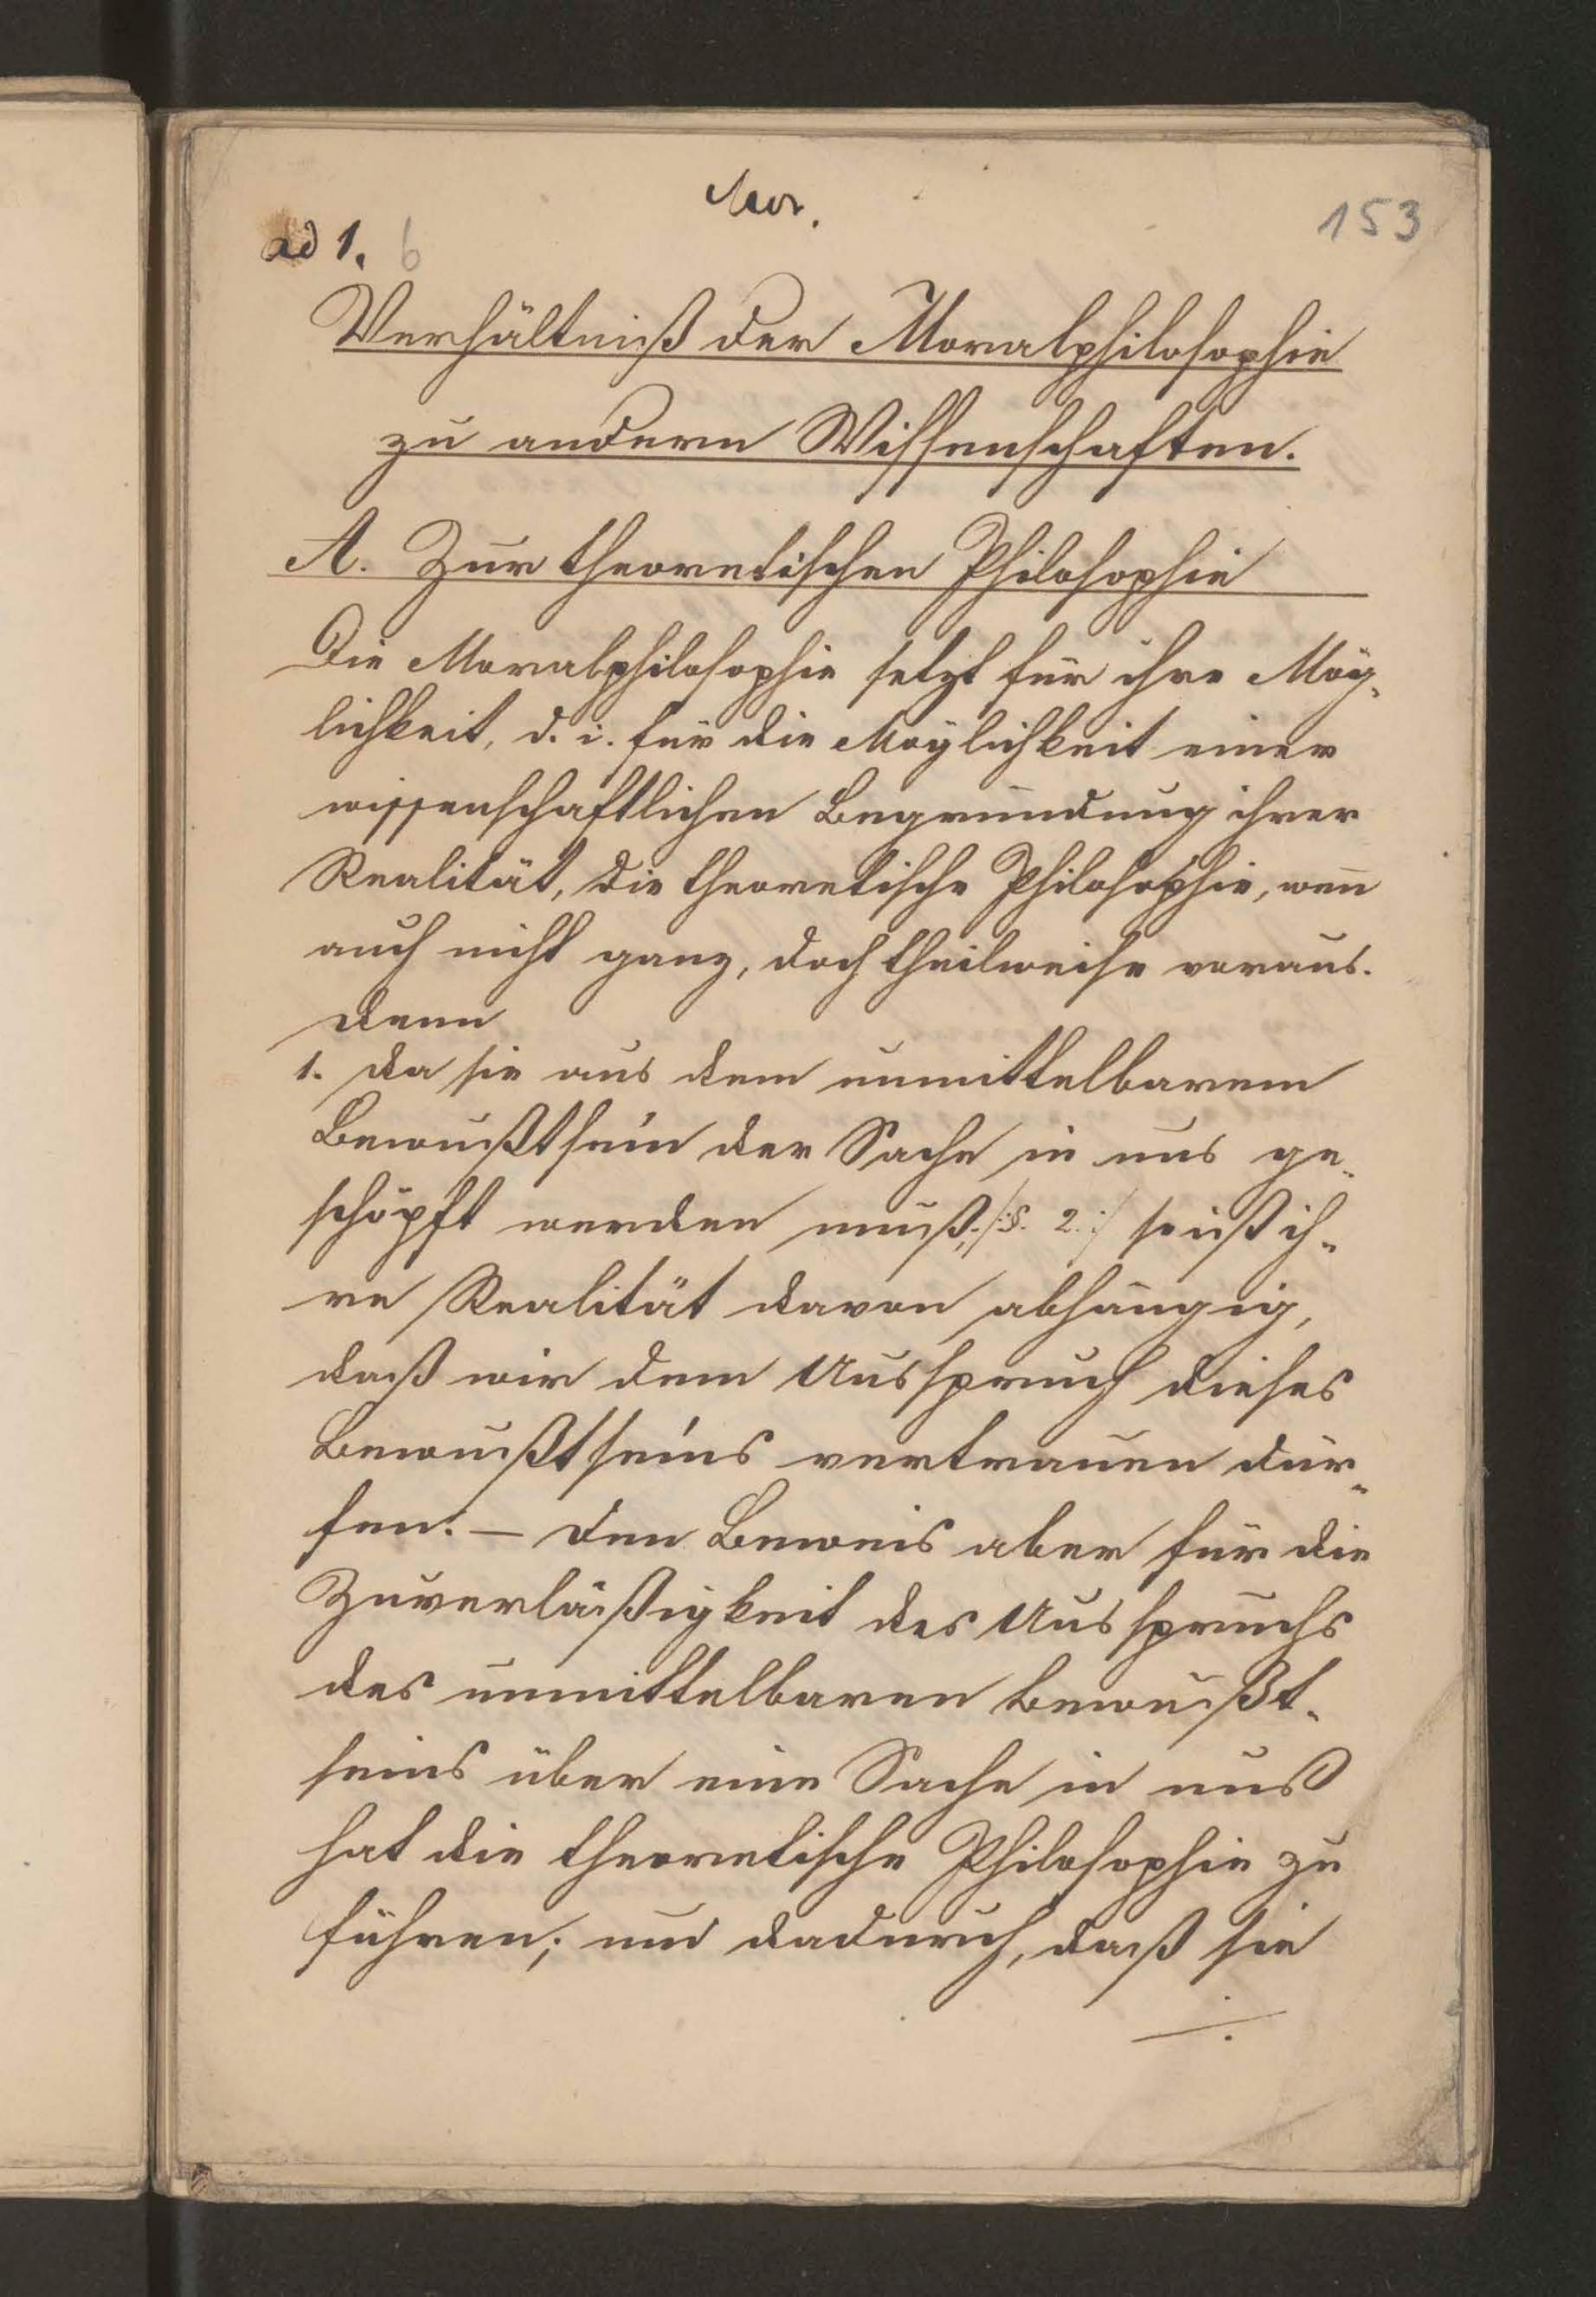 Mor.
153
ad 1. 6
Verhältniß der Moralphilosophie
zu andern Wissenschaften.
A. Zur theoretischen Philosophie
Die Moralphilosophie setzt für ihre Mög-
lichkeit, d. i. für die Möglichkeit einer
wissenschaftlichen Begründung ihrer
Realität, die theoretische Philosophie, wenn
auch nicht ganz, doch theilweise voraus.
Denn
1. da sie aus dem unmittelbarem
Bewußtsein der Sache in uns ge-
schöpft werden muß, /:§. 2.:/ so ist ih-
re Realität davon abhängig,
daß wir dem Ausspruch dieses
Bewußtseins vertrauen dür-
fen. – Den Beweis aber für die
Zuverläßigkeit des Ausspruchs
des unmittelbaren Bewußt-
seins über eine Sache in uns
hat die theoretische Philosophie zu
führen; und dadurch, daß sie